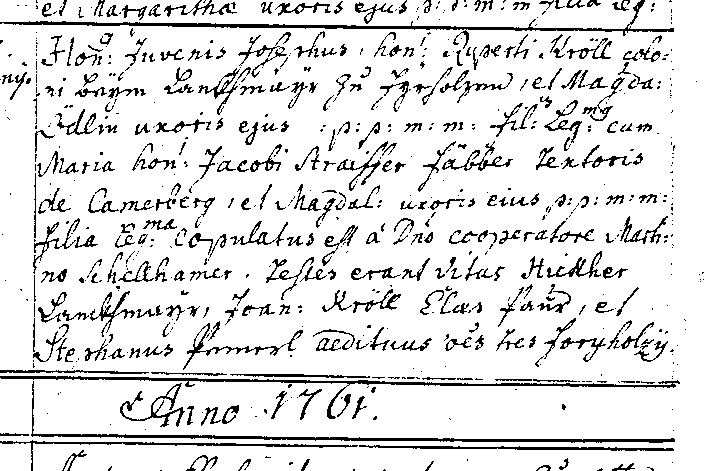 et Margarithæ uxoris ejus p: p: m: m filia leg:
Hon: Juvenis Josephus, hon: Ruperti Kröll colo:
ni beÿm Lanckhmaÿr zu et Magda:
Ödlin uxoris ejus :p: p: m: m: fil: Leg: mg cum
Maria hon: Jacobi Straisser Textoris
de Camerberg, et Magdal: uxoris eius p: p: m: m:
filia leg: ma Copulatus est à Dno cooperatore Marti-
no Schelkhamer. Testes erant Vitus Hickher
Lanckhmaÿr, Joan: Kröll Paur, et
Stephanus Pemerl ædituus oes tres
Anno 1761.